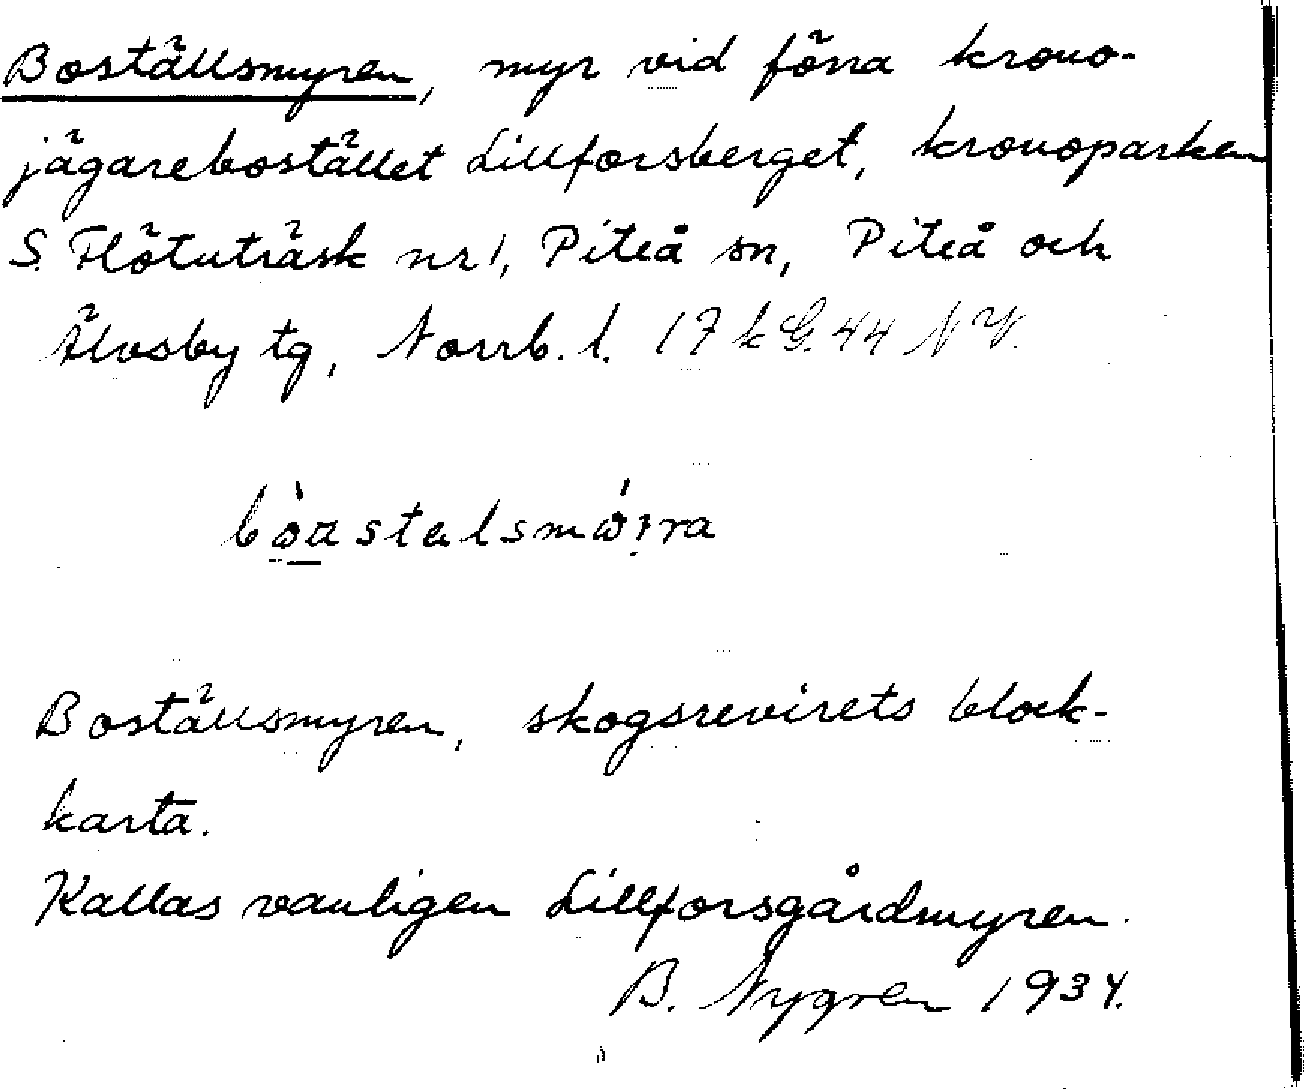 Boställsmyren, myr vid förra krono-
jägarebostället Lillforsberget, kronoparken
S. Flötuträsk nr 1, Piteå sn, Piteå och
Älvsby tg, Norrb. l. 17 k G. 44 N.Y.
Boställsmyren, skogsrevirets block-
karta.
Kallas vanligen Lillforsgårdmyren.
B. Nygren 1934.